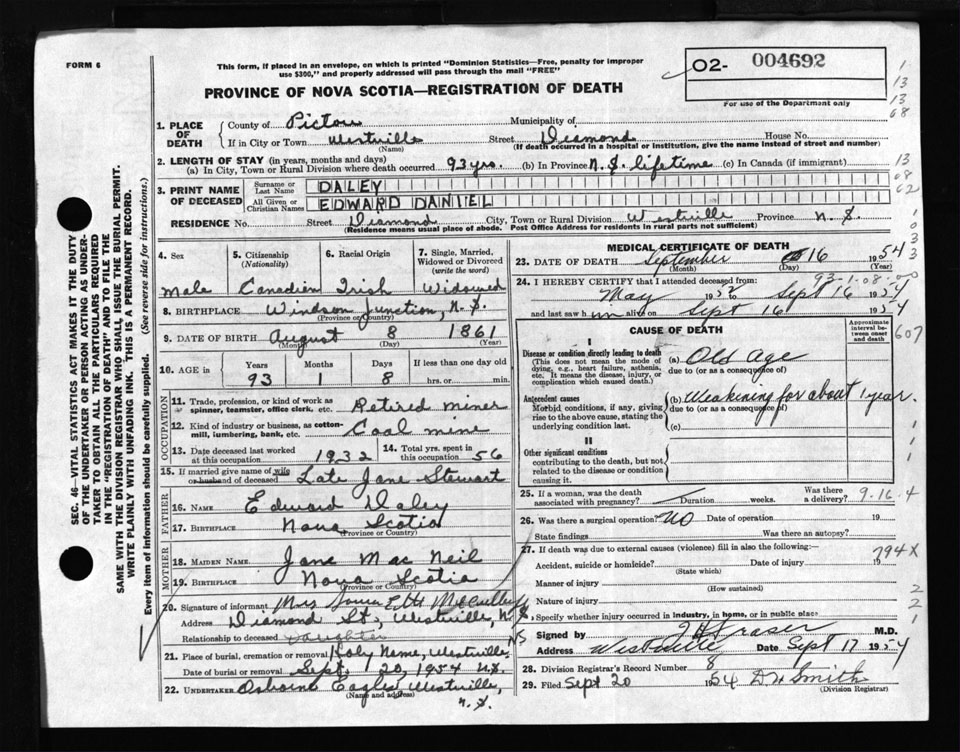 FORM 6
This form, if placed in an envelope, on which is printed "Dominion Statistics—Free, penalty for improper
use $300," and properly addressed will pass through the mail "FREE"
02- 004692
For use of the Department only
PROVINCE OF NOVA SCOTIA—REGISTRATION OF DEATH
1. PLACE OF DEATH
County of Pictou Municipality of
If in City or Town Westville Street Diamond House No.
(Name) (If death occurred in a hospital or institution, give the name instead of street and number)
2. LENGTH OF STAY (in years, months and days)
(a) In City, Town or Rural Division where death occurred 93 yrs. (b) In Province N.S. lifetime (c) In Canada (if immigrant)
3. PRINT NAME OF DECEASED
Surname or Last Name DALEY
All Given or Christian Names EDWARD DANIEL
RESIDENCE No. Street Diamond City, Town or Rural Division Westville Province N.S.
(Residence means usual place of abode. Post Office Address for residents in rural parts not sufficient)
4. Sex 5. Citizenship (Nationality) 6. Racial Origin 7. Single, Married, Widowed or Divorced (write the word)
Male Canadian Irish Widowed
8. BIRTHPLACE Windsor Junction, N.S.
(Province or Country)
9. DATE OF BIRTH August 8 1861
(Month) (Day) (Year)
10. AGE in Years Months Days If less than one day old
93 1 8 hrs. or min.
OCCUPATION
11. Trade, profession, or kind of work as spinner, teamster, office clerk, etc. Retired miner
12. Kind of industry or business, as cotton-mill, lumbering, bank, etc. Coal mine
13. Date deceased last worked at this occupation 1932 14. Total yrs. spent in this occupation 56
15. If married give name of wife or husband of deceased Late Jane Stewart
FATHER
16. NAME Edward Daley
17. BIRTHPLACE Nova Scotia
(Province or Country)
MOTHER
18. MAIDEN NAME Jane MacNeil
19. BIRTHPLACE Nova Scotia
(Province or Country)
20. Signature of informant Mrs
Address Diamond St., Westville, N.S.
Relationship to deceased Daughter
21. Place of burial, cremation or removal Holy Name, Westville
Date of burial or removal Sept. 20, 1954 N.S.
22. UNDERTAKER Eagles Westville,
(Name and address) N.S.
MEDICAL CERTIFICATE OF DEATH
23. DATE OF DEATH September 16 1954
(Month) (Day) (Year)
93-1-08
24. I HEREBY CERTIFY that I attended deceased from:
May 1952 to Sept 16 1954
and last saw him alive on Sept 16 1954
CAUSE OF DEATH
Approximate interval between onset and death
I
Disease or condition directly leading to death (a) Old Age
(This does not mean the mode of dying, e.g., heart failure, asthenia, etc. It means the disease, injury, or complication which caused death.)
due to (or as a consequence of)
Antecedent causes (b) Weakining for about 1 year.
Morbid conditions, if any, giving rise to the above cause, stating the underlying condition last.
due to (or as a consequence of)
(c)
II
Other significant conditions
contributing to the death, but not related to the disease or condition causing it.
25. If a woman, was the death associated with pregnancy? Duration weeks. Was there a delivery? 9.16.4
26. Was there a surgical operation? No Date of operation 19
State findings Was there an autopsy?
27. If death was due to external causes (violence) fill in also the following:—
794X
Accident, suicide or homicide? Date of injury 19
(State which)
Manner of injury
(How sustained)
Nature of injury
Specify whether injury occurred in industry, in home, or in public place
Signed by Fraser M.D.
Address Westville NS Date Sept 17 1954
28. Division Registrar's Record Number 8
29. Filed Sept 20 1954 D W Smith
(Division Registrar)
SEC. 46—VITAL STATISTICS ACT MAKES IT THE DUTY
OF THE UNDERTAKER OR PERSON ACTING AS UNDER-
TAKER TO OBTAIN ALL THE PARTICULARS REQUIRED
IN THE "REGISTRATION OF DEATH" AND TO FILE THE
SAME WITH THE DIVISION REGISTRAR WHO SHALL ISSUE THE BURIAL PERMIT.
WRITE PLAINLY WITH UNFADING INK. THIS IS A PERMANENT RECORD.
Every item of information should be carefully supplied. (See reverse side for instructions.)
1
13
13
08
13
08
02
1
0
3
3
607
1
1
1
2
2
1